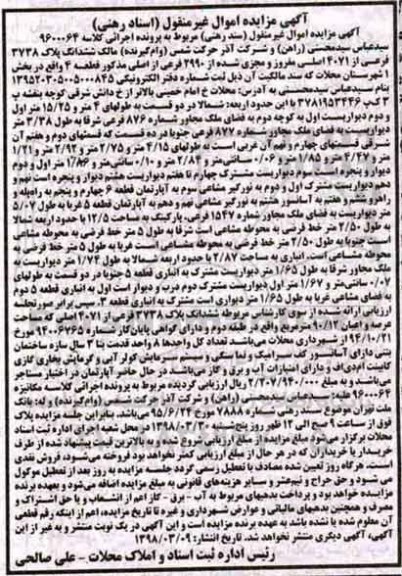 آگهی مزایده اموال غیرمنقول (اسناد رهنی)
آگهی مزایده اموال غیر منقول (سند رهنی) مربوط به پرونده اجرائی کلاسه ۹۶۰۰۰۶۴
سیدعباس سیدمحسنی (راهن) و شرکت آذر حرکت شمس (وام‌گیرنده) مالک ششدانگ پلاک ۳۷۳۸
فرعی از ۴۰۷۱ اصلی مفروز و مجزی شده از ۲۹۹۰ فرعی از اصلی مذکور قطعه ۴ واقع در بخش
۱ شهرستان محلات که سند مالکیت آن ذیل ثبت شماره دفتر الکترونیکی
بنام سیدعباس سیدمحسنی به آدرس: محلات خ امام خمینی بالاتر از خ دانش شرقی کوچه بنفشه پ
۳ ک‌پ ۳۷۸۱۹۵۳۴۴۶ با این حدود اربعه: شمالا در دو قسمت به طولهای ۴ متر و ۱۵/۲۵ متر اول
و دوم دیواریست اول به کوچه دوم به فضای ملک مجاور شماره ۸۷۶ فرعی شرقا به طول ۳/۳۸ متر
دیواریست به فضای ملک مجاور شماره ۸۷۷ فرعی جنوبا در ده قسمت که قسمتهای دوم و هفتم آن
شرقی قسمتهای چهارم و نهم آن غربی است به طولهای ۴/۱۵ متر و ۲/۷۵ متر و ۲/۹۲ متر و ۱/۲۱
متر و ۴/۴۷ متر و ۱/۸۵ متر و ۰/۰۶ سانتی‌متر و ۲/۸۴ متر و ۰/۱۰ سانتی‌متر و ۱/۸۶ متر اول و دوم
دیوار و پنجره است سوم دیواریست مشترک چهارم تا هفتم دیواریست هشتم دیوار و پنجره است نهم و
دهم دیواریست مشترک اول و دوم به نورگیر مشاعی سوم به آپارتمان قطعه ۶ چهارم و پنجم به راه‌پله و
راهرو ششم و هفتم به آسانسور هشتم به نورگیر مشاعی نهم و دهم به آپارتمان قطعه ۵ غربا به طول ۵/۰۷
متر دیواریست به فضای ملک مجاور شماره ۱۵۴۷ فرعی. پارکینگ به مساحت ۱۲/۵ با حدود اربعه شمالا
به طول ۲/۵۰ متر خط فرضی به محوطه مشاعی است شرقا به طول ۵ متر خط فرضی به محوطه مشاعی
است جنوبا به طول ۲/۵۰ متر خط فرضی به محوطه مشاعی است غربا به طول ۵ متر خط فرضی به
محوطه مشاعی است. انباری به مساحت ۲/۸۷ با حدود اربعه شمالا به طول ۱/۷۴ متر دیواریست به
ملک مجاور شرقا به طول ۱/۶۵ متر دیواریست مشترک به انباری قطعه ۵ جنوبا در دو قسمت به طولهای
۰/۰۷ سانتی‌متر و ۱/۶۷ متر اول دیواریست مشترک دوم درب و دیوار است اول به انباری قطعه ۵ دوم
به فضای مشاعی غربا به طول ۱/۶۵ متر دیواری است مشترک به انباری قطعه ۳. سپس برابر صورتجلسه
ارزیابی ارائه شده از سوی کارشناس مربوطه ششدانگ پلاک ۳۷۳۸ فرعی از ۴۰۷۱ اصلی که مساحت
عرصه و اعیان ۹۰/۱۲ مترمربع واقع در طبقه دوم و دارای گواهی پایان‌کار شماره ۹۴۰۰۶۷۶۵ مورخ
۹۴/۱۰/۲۱ از شهرداری محلات می‌باشد تعداد کل واحدها ۸ واحد قدمت بنا ۳ سال سازه ساختمان
بتنی دارای آسانسور کف سرامیک و نما سنگی و سیستم سرمایش کولر آبی و گرمایش بخاری گازی
کابینت ام‌دی‌اف و دارای امتیازات آب و برق و گاز می‌باشد در حال حاضر آپارتمان در اختیار مستاجر
می‌باشد و به مبلغ ۲/۲۰۷/۹۴۰/۰۰۰ ریال ارزیابی گردیده مربوط به پرونده اجرائی کلاسه مکانیزه
۹۶۰۰۰۶۴ علیه: سیدعباس سیدمحسنی (راهن) و شرکت آذر حرکت شمس (وام‌گیرنده) و له: بانک
ملت تهران موضوع سند رهنی شماره ۷۸۸۸ مورخ ۹۵/۶/۲۴ می‌باشد. بنابراین جلسه مزایده پلاک
فوق از ساعت ۹ صبح الی ۱۲ ظهر روز پنجشنبه ۱۳۹۸/۰۳/۳۰ در محل شعبه اجرای اداره ثبت اسناد
محلات برگزار می‌شود مبلغ مزایده از مبلغ ارزیابی شروع شده و به بالاترین قیمت پیشنهاد شده از طرف
خریدار یا خریداران که در هر حال از مبلغ ارزیابی کمتر نخواهد بود فروخته می‌شود. فروش نقدی
است. هرگاه روز تعیین شده مصادف با تعطیل رسمی گردد جلسه مزایده به روز بعد از تعطیل موکول
می شود و حق حراج و نیم‌عشر و سایر هزینه‌های قانونی به مبلغ مزایده اضافه می‌شود و بعهده برنده
مزایده خواهد بود و پرداخت بدهیهای مربوط به آب - برق - گاز اعم از انشعاب و یا حق اشتراک و
مصرف و همچنین بدهیهای مالیاتی و عوارض شهرداری و غیره تا تاریخ مزایده، اعم از اینکه رقم قطعی
آن معلوم شده یا نشده باشد به عهده برنده مزایده است و این آگهی در یک نوبت منتشر و به غیر از این
آگهی، آگهی دیگری منتشر نخواهد شد. تاریخ انتشار: ۱۳۹۸/۰۳/۰۹
رئیس اداره ثبت اسناد و املاک محلات - علی صالحی